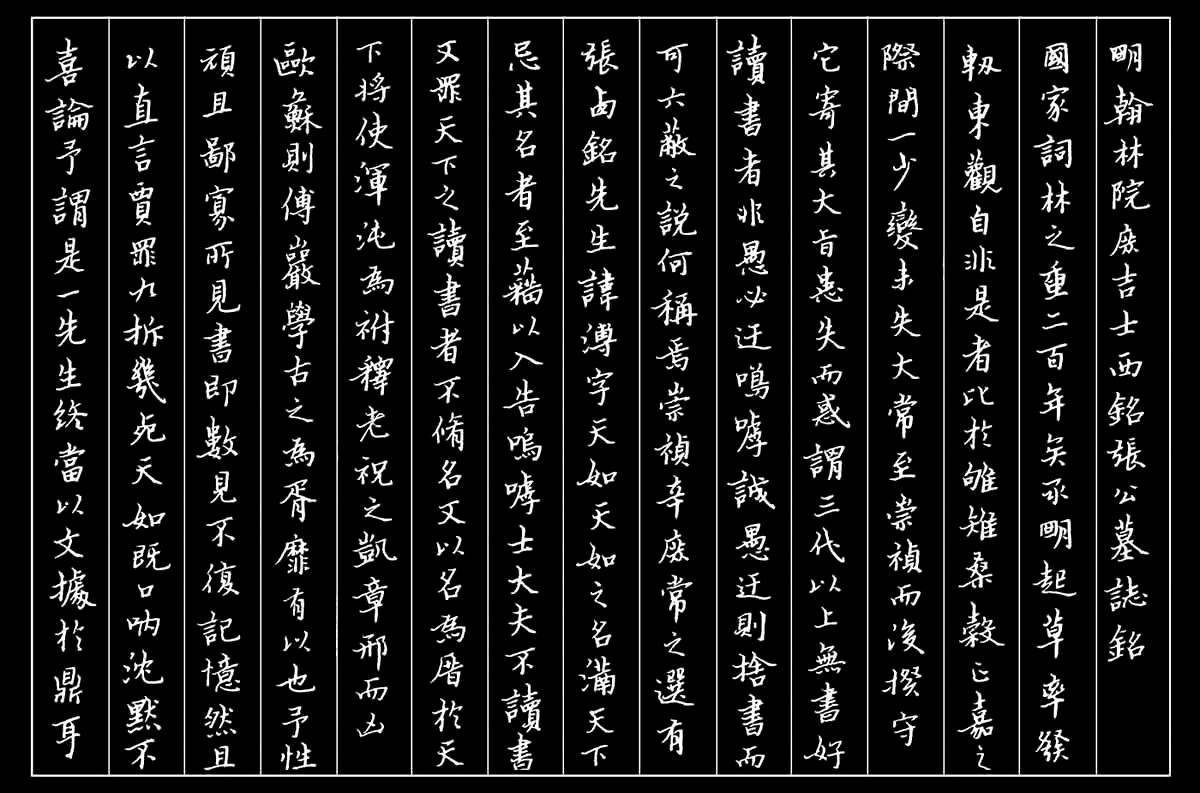 明翰林院庶吉士西銘張公墓誌銘
國家詞林之重二百年矣承明起草率發
軔東觀自非是者比於雊雉桑穀已嘉之
際間一少變未失大常至崇禎而後揆守
它寄其大旨患失而惑謂三代以上無書好
讀書者非愚必迂嗚嘑誠愚迂則捨書而
可六蔽之說何稱焉崇禎辛庶常之選有
張卣銘先生諱溥字天如天如之名滿天下
忌其名者至藉以入告嗚嘑士大夫不讀書
又罪天下之讀書者不脩名又以名為厝於天
下將使渾沌為祔釋老祝之凱章邢而凶
歐蘇則傅巖學古之為胥靡有以也予性
頑且鄙寡所見書即數見不復記憶然且
以直言賈罪九拆幾死天如既口吶沈默不
喜論予謂是一先生終當以文據於鼎耳